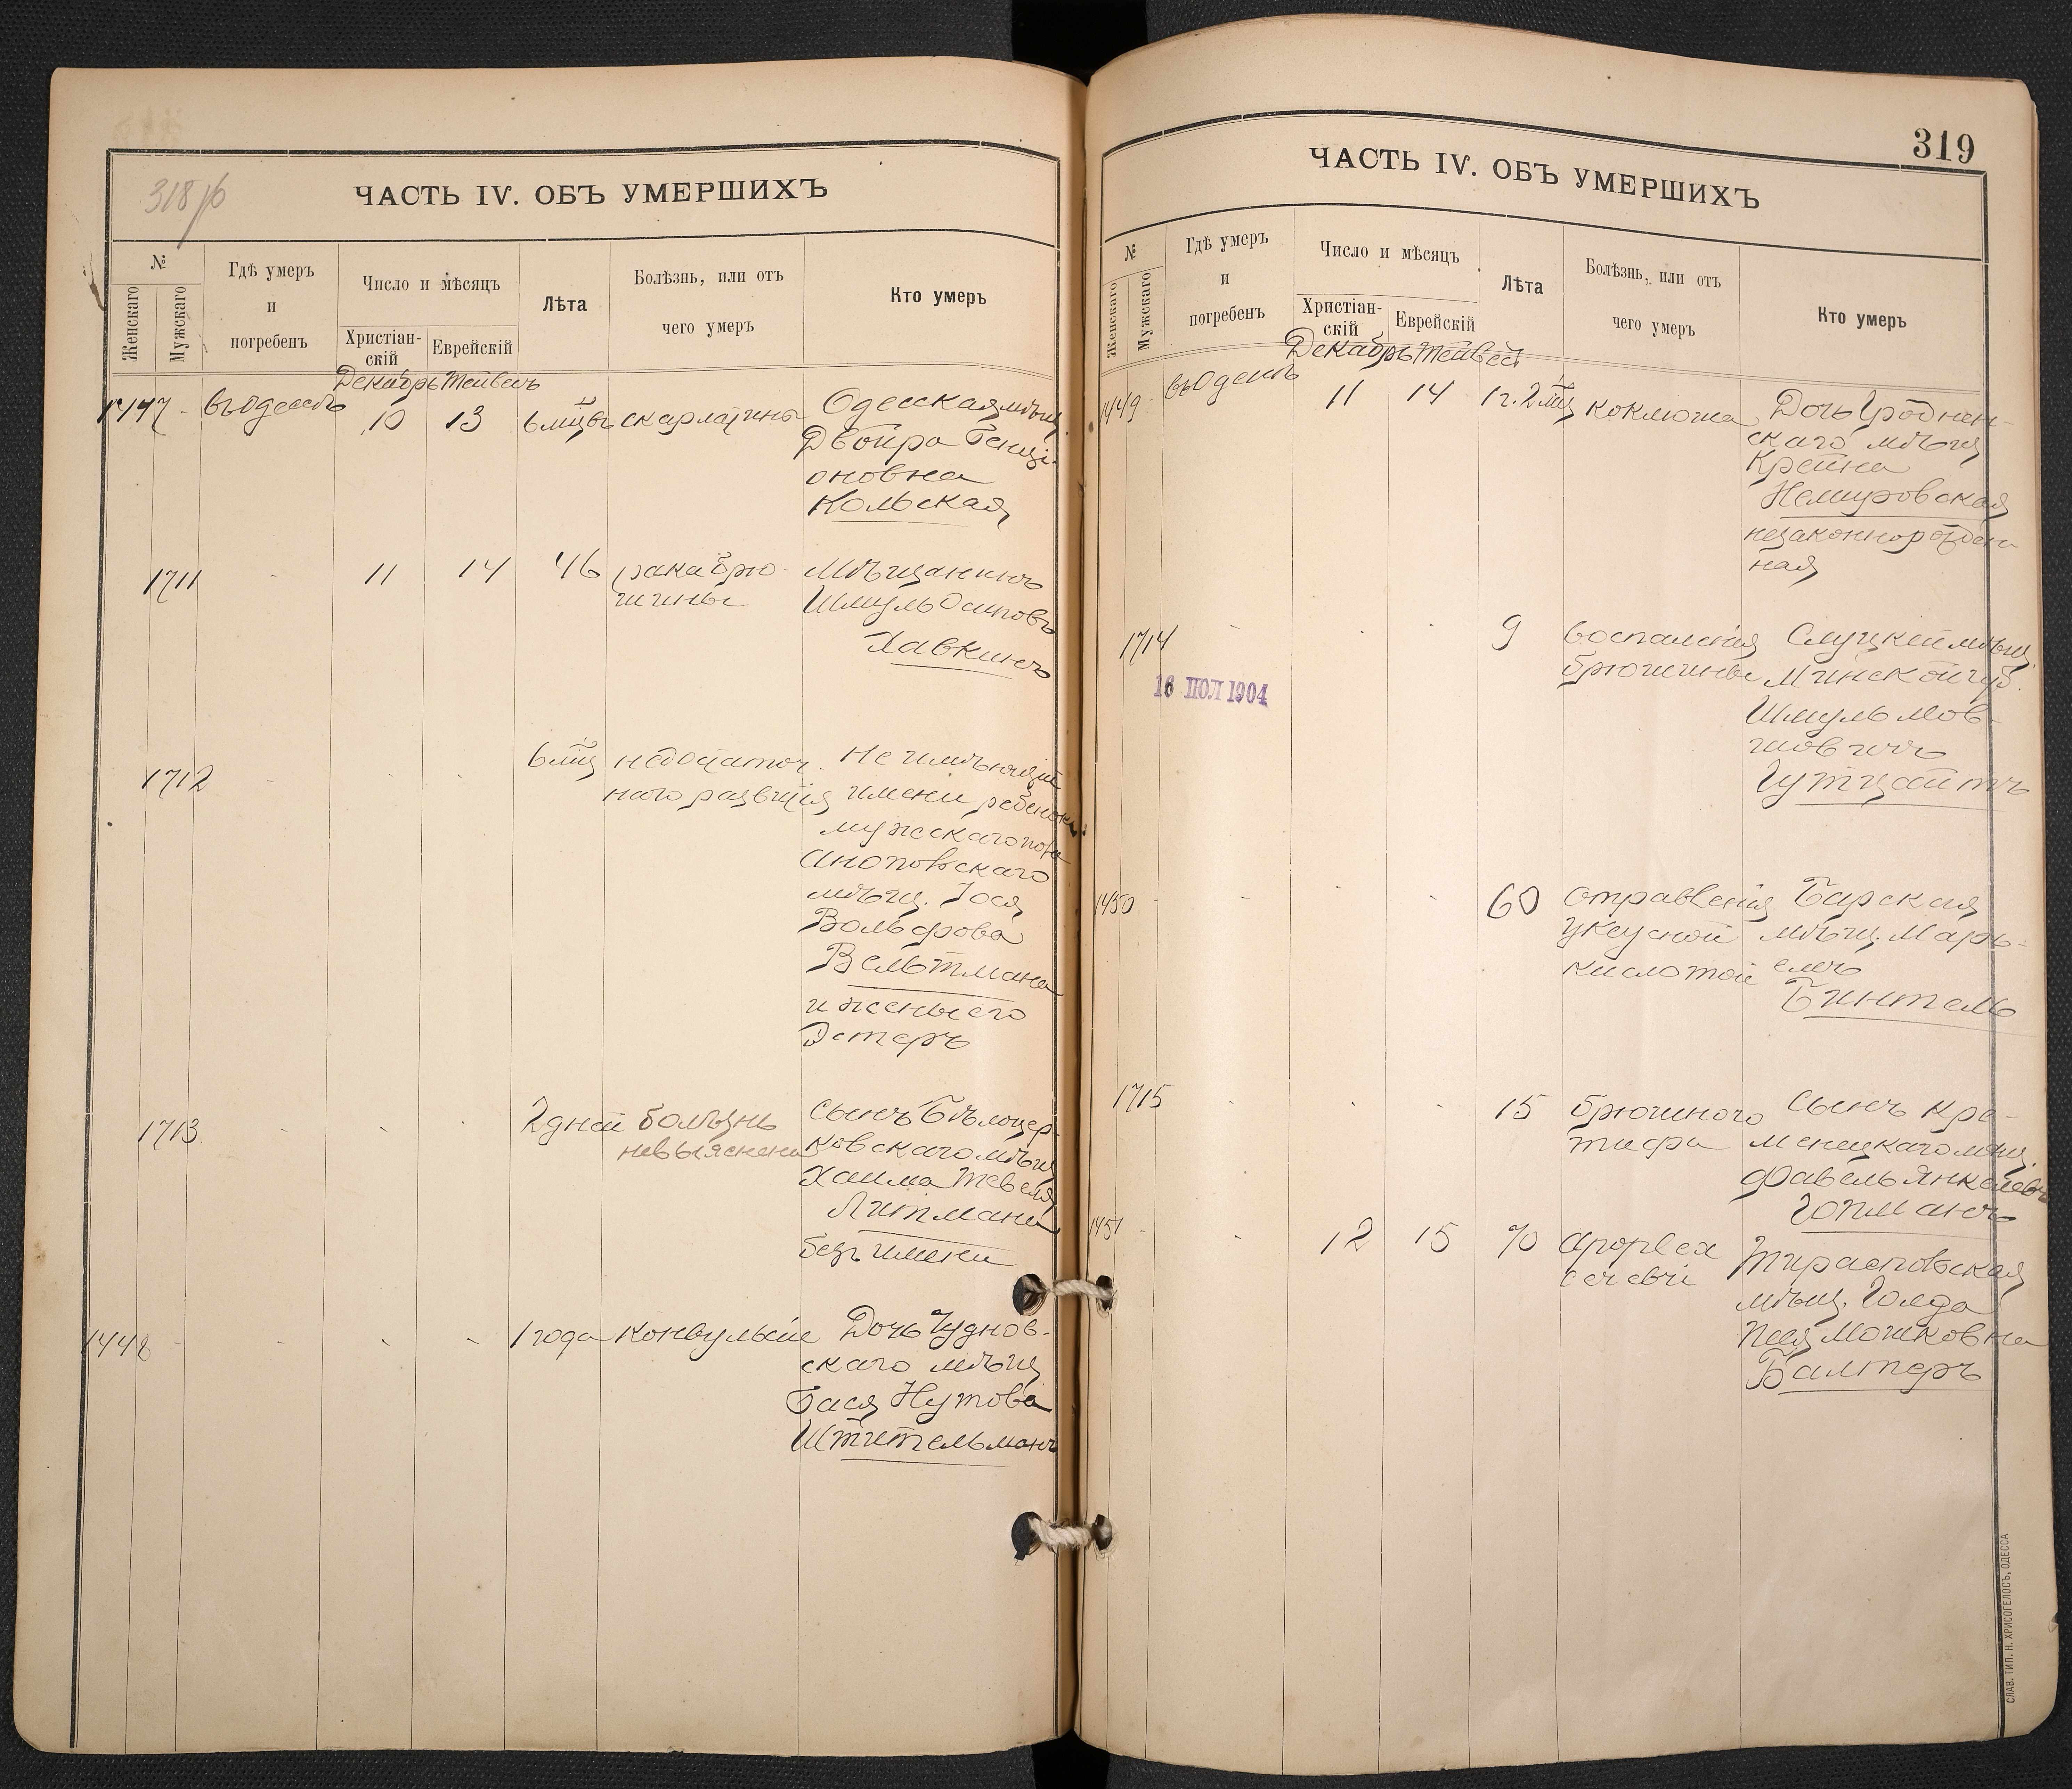 318 об
ЧАСТЬ IV. ОБЪ УМЕРШИХЪ
№
Женскаго
Мужскаго
Гдѣ умеръ
и
погребенъ
Число и мѣсяцъ
Христіан-
скій
Еврейскій
Лѣта
Болѣзнь, или отъ
чего умеръ
Кто умеръ
Декабрь Тейвесъ
1447 въ Одессѣ 10 13 6 мцвъ скарлатины Одесская мѣщ.
Двойра Бенці-
оновна
Кольская
1711 11 14 46 рака брю- Мѣщанинъ
шины Шмуль Осиповъ
Хавкинъ
1712 6 мц недостаточ- Не имѣющій
наго развитія имени ребенокъ
мужскаго пола
Анопольскаго
мѣщ. Іося
Вольфова
Вельтмана
и жены его
Эстеръ
1713 2 дней болѣзнь Сынъ Бѣлоцер-
невыяснена ковскаго мѣщ
Хаима Тевеля
Литмана
безъ имени
1448 1 года конвульсіи Дочь Чуднов-
скаго мѣщ
Бася Нутова
Штительманъ
319
ЧАСТЬ IV. ОБЪ УМЕРШИХЪ
№
Женскаго
Мужскаго
Гдѣ умеръ
и
погребенъ
Число и мѣсяцъ
Христіан-
скій
Еврейскій
Лѣта
Болѣзнь, или отъ
чего умеръ
Кто умеръ
Декабрь Тейвес
1449 въ Одессѣ 11 14 1 г. 2 мц коклюша Дочь Гроднен-
скаго мѣщ
Крейна
Немировская
незаконнорожден-
ная
1714 9 воспаленія Слуцкій мѣщ.
брюшины Минской губ.
Шмуль Мов-
шовичъ
Гутцайтъ
16 ІЮЛ 1904
1450 60 отравленія Барская
уксусной мѣщ. Марь-
кислотой
Бинтель
1715 15 брюшного Сынъ Кре-
тифа менецкаго мѣщ.
Файвель Янкелевъ
Гопманъ
1451 12 15 70 Apoplex Тираспольская
cerebri мѣщ. Голда
Песя Мошковна
Балтеръ
СЛАВ. ТИП. Н. ХРИСОГЕЛОСЪ, ОДЕССА